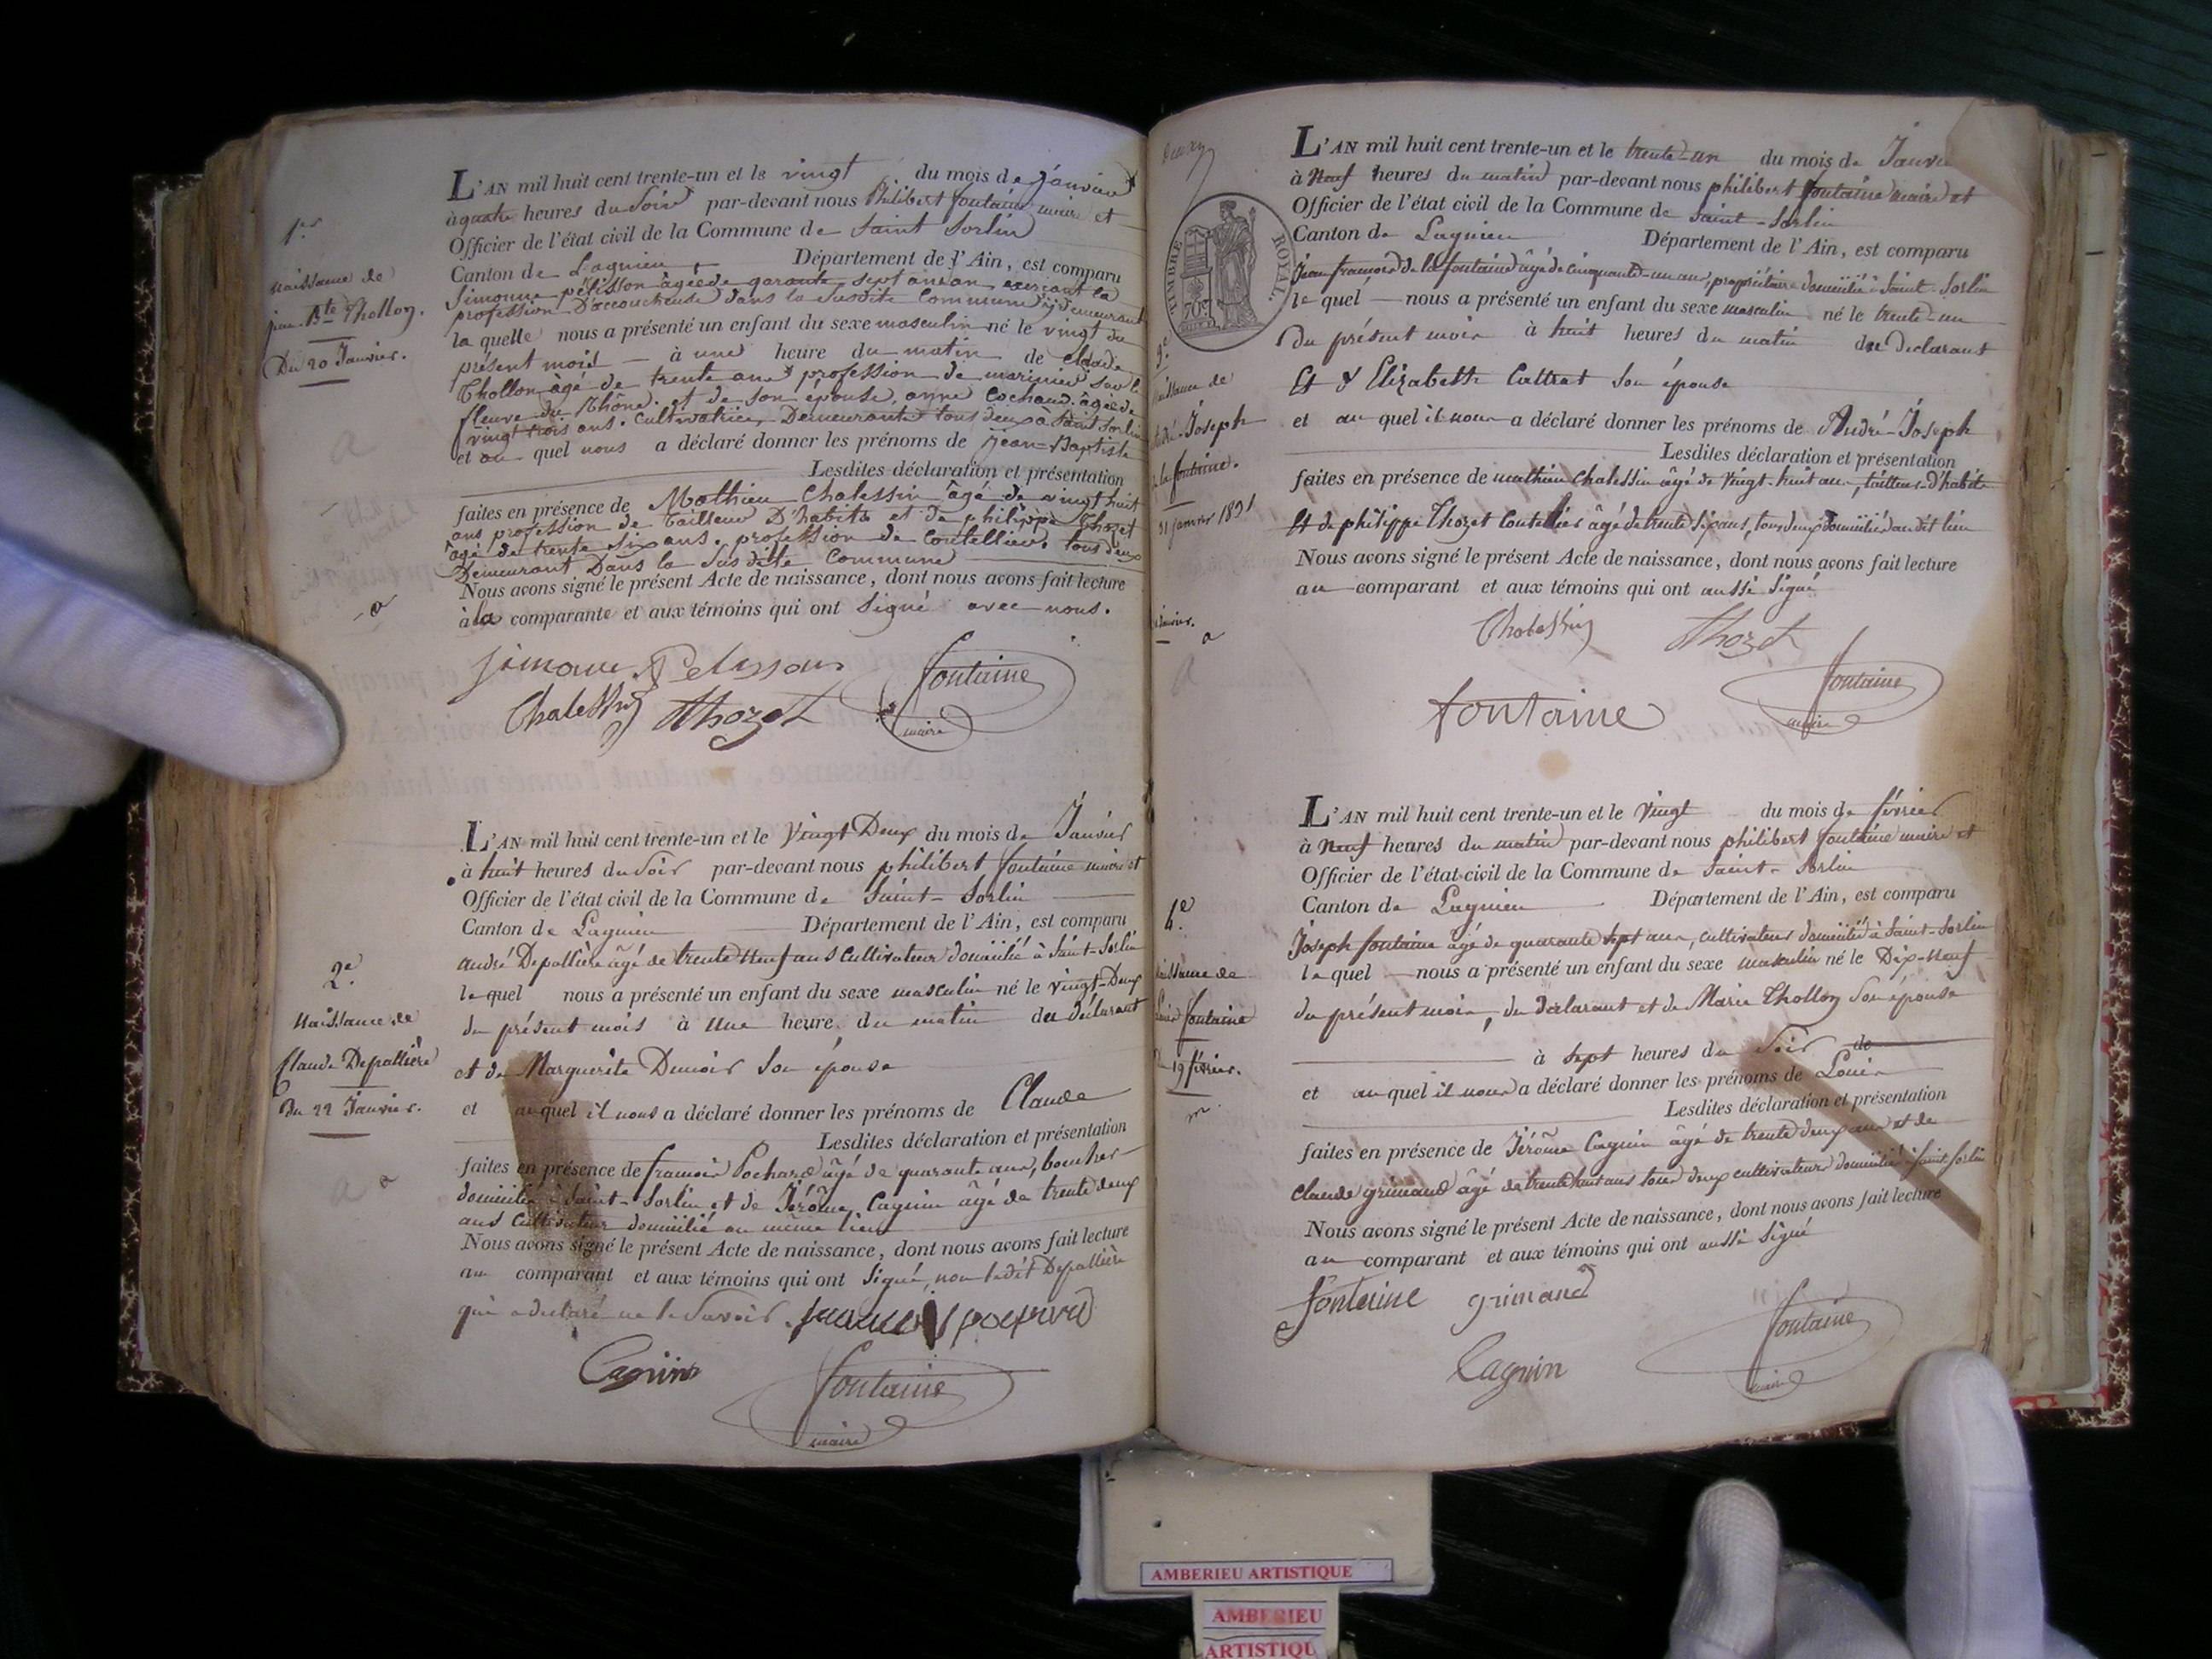 1er
naissance de
jean Bte Thollon.
Du 20 Janvier.
L'AN mil huit cent trente-un et le vingt du mois de janvier
à quatre heures du soir par-devant nous Philibert fontaine maire et
Officier de l'état civil de la Commune de Saint Sorlin
Canton de Lagnieu Département de l'Ain, est comparu
Simonne pélisson âgée de quarante sept ans exerçant la
profession D'accoucheuse dans la susdite Commune y demeurant
la quelle nous a présenté un enfant du sexe masculin né le vingt du
présent mois à une heure du matin de Claude
Thollon âgé de trente ans profession de marinier sur le
fleuve du Rhône. et de son épouse, anne Cochand. âgée de
vingt trois ans. Cultivatrice, Demeurants tous deux à Saint Sorlin
et au quel nous a déclaré donner les prénoms de jean-Baptiste
Lesdites déclaration et présentation
faites en présence de Mathieu Chalessin âgé de vingt huit
ans profession de tailleur D'habits et de philippe Thozet
âgé de trente six ans. profession de coutellier. tous deux
Demeurant Dans la susdite Commune
Nous avons signé le présent Acte de naissance, dont nous avons fait lecture
à la comparante et aux témoins qui ont signé avec nous.
Simonne Pelisson
Chalessin Thozet fontaine
maire
2e
Naissance de
Claude Depallière
Du 22 Janvier.
L'AN mil huit cent trente-un et le Vingt Deux du mois de Janvier
à huit heures du soir par-devant nous philibert fontaine maire et
Officier de l'état civil de la Commune de Saint-Sorlin
Canton de Lagnieu Département de l'Ain, est comparu
andré Depallière âgé de trente neuf ans Cultivateur domicilié à Saint-Sorlin
le quel nous a présenté un enfant du sexe masculin né le vingt-Deux
du présent mois à une heure du matin du déclarant
et de Marguerite Dunoir son épouse
et auquel il nous a déclaré donner les prénoms de Claude
Lesdites déclaration et présentation
faites en présence de francois Pochard âgé de quarante ans, boucher
domicilié à Saint-Sorlin et de Jérôme Cagnin âgé de trente deux
ans Cultivateur domicilié au même lieu
Nous avons signé le présent Acte de naissance, dont nous avons fait lecture
au comparant et aux témoins qui ont signé, non ledit Depallière
qui a déclaré ne le savoir. francois pochard
Cagnin fontaine
maire
TIMBRE ROYAL
70c
naissance de
André-Joseph
de la fontaine.
31 janvier 1831
L'AN mil huit cent trente-un et le trente-un du mois de Janvi
à Neuf heures du matin par-devant nous philibert fontaine maire et
Officier de l'état civil de la Commune de Saint-Sorlin
Canton de Lagnieu Département de l'Ain, est comparu
Jean francois de la fontaine âgé de cinquante-un ans, propriétaire domicilié à Saint-Sorlin
le quel nous a présenté un enfant du sexe masculin né le trente-un
du présent mois à huit heures du matin du déclarant
Et d'Elizabeth Cattrat son épouse
et au quel il nous a déclaré donner les prénoms de André-Joseph
Lesdites déclaration et présentation
faites en présence de mathieu Chalessin âgé de Vingt-huit ans, tailleur d'habits
Et de philippe Thozet Coutellier âgé de trente six ans, tous deux Domiciliés audit lieu
Nous avons signé le présent Acte de naissance, dont nous avons fait lecture
au comparant et aux témoins qui ont aussi signé
Chalessin Thozet
fontaine fontaine
maire
4e
naissance de
Louis fontaine
19 février.
L'AN mil huit cent trente-un et le Vingt du mois de février
à Neuf heures du matin par-devant nous philibert fontaine maire et
Officier de l'état civil de la Commune de Saint-Sorlin
Canton de Lagnieu Département de l'Ain, est comparu
Joseph fontaine âgé de quarante sept ans, cultivateur domicilié à Saint-Sorlin
le quel nous a présenté un enfant du sexe masculin né le Dix-neuf
du présent mois, du déclarant et de Marie Thollon son épouse
à sept heures du soir de
et au quel il nous a déclaré donner les prénoms de Louis
Lesdites déclaration et présentation
faites en présence de Jérôme Cagnin âgé de trente deux ans et de
Claude grimand âgé de trente huit ans tous deux cultivateurs domiciliés à Saint Sorlin
Nous avons signé le présent Acte de naissance, dont nous avons fait lecture
au comparant et aux témoins qui ont aussi signé
fontaine grimand
Cagnin fontaine
maire
AMBERIEU ARTISTIQUE
AMBERIEU
ARTISTIQU